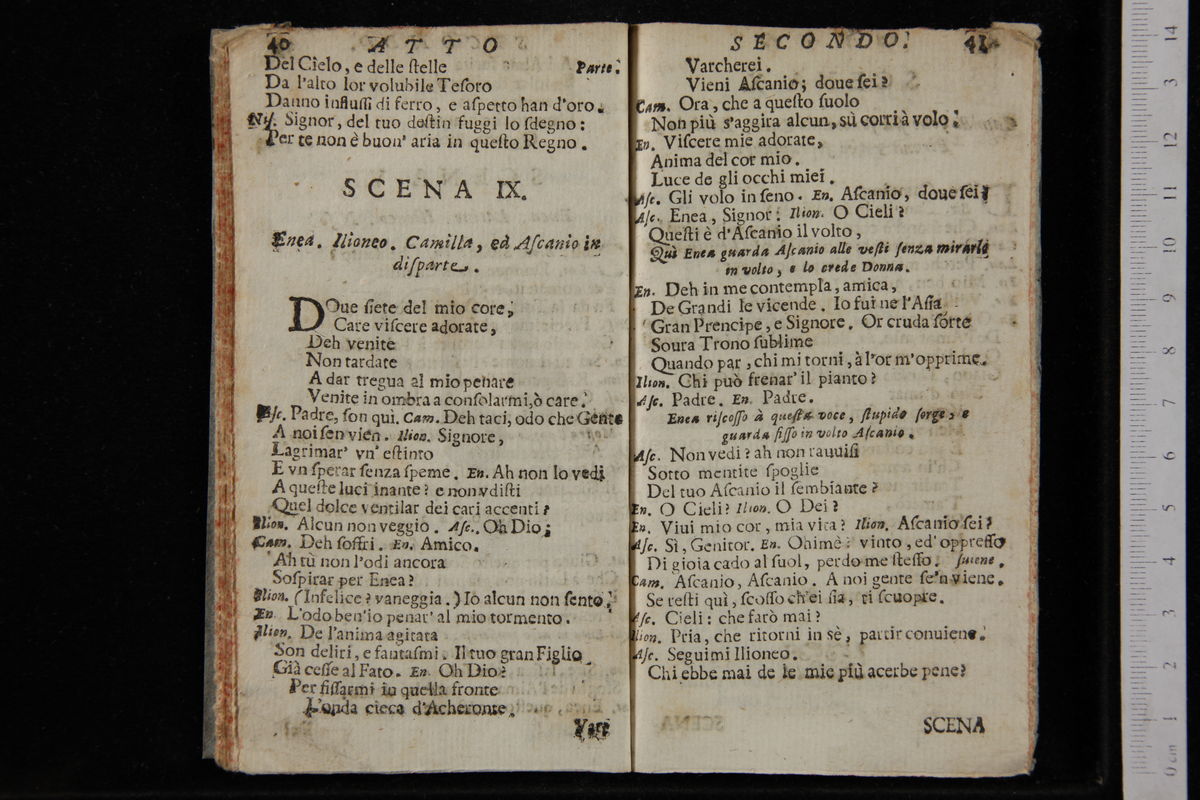 40 ATTO
Del Cielo, e delle ſtelle Parte.
Da l'alto lor volubile Teſoro
Danno influſſi di ferro, e aſpetto han d'oro.
Niſ. Signor, del tuo deſtin fuggi lo ſdegno:
Per te non è buon' aria in queſto Regno.
SCENA IX.
Enea. Ilioneo. Camilla, ed Aſcanio in
diſparte.
DOue ſiete del mio core,
Care viſcere adorate,
Deh venite
Non tardate
A dar tregua al mio penare
Venite in ombra a conſolarmi, ò care.
Aſc. Padre, ſon qui. Cam. Deh taci, odo che Gente
A noi ſen vien. Ilion. Signore,
Lagrimar' vn' eſtinto
E vn ſperar ſenza ſpeme. En. Ah non lo vedi
A queſte luci inante? e non vdiſti
Quel dolce ventilar dei cari accenti?
Ilion. Alcun non veggio. Aſc. Oh Dio;
Cam. Deh ſoffri. En. Amico.
Ah tù non l'odi ancora
Soſpirar per Enea?
Ilion. (Infelice? vaneggia.) Io alcun non ſento.
En. L'odo ben'io penar' al mio tormento.
Ilion. De l'anima agitata
Son deliri, e fantaſmi. Il tuo gran Figlio
Già ceſſe al Fato. En. Oh Dio?
Per fiſſarmi in quella fronte
L'onda cieca d'Acheronte.
Var-
SECONDO. 41
Varcherei.
Vieni Aſcanio; doue ſei?
Cam. Ora, che a queſto ſuolo
Non più s'aggira alcun, sù corri à volo.
En. Viſcere mie adorate,
Anima del cor mio.
Luce de gli occhi miei.
Aſc. Gli volo in ſeno. En. Aſcanio, doue ſei?
Aſc. Enea, Signor: Ilion. O Cieli?
Queſti è d'Aſcanio il volto,
Quì Enea guarda Aſcanio alle veſti ſenza mirarlo
in volto, e lo crede Donna.
En. Deh in me contempla, amica,
De Grandi le vicende. Io fui ne l'Aſia
Gran Prencipe, e Signore. Or cruda ſorte
Soura Trono ſublime
Quando par, chi mi torni, à l'or m'opprime.
Ilion. Chi può frenar' il pianto?
Aſc. Padre. En. Padre.
Enea riſcoſſo à queſta voce, ſtupido ſorge, e
guarda fiſſo in volto Aſcanio.
Aſc. Non vedi? ah non rauuiſi
Sotto mentite ſpoglie
Del tuo Aſcanio il ſembiante?
En. O Cieli? Ilion. O Dei?
En. Viui mio cor, mia vita? Ilion. Aſcanio ſei?
Aſc. Sì, Genitor. En. Ohimè: vinto, ed' oppreſſo
Di gioia cado al ſuol, perdo me ſteſſo. ſuiene.
Cam. Aſcanio, Aſcanio. A noi gente ſe'n viene.
Se reſti quì, ſcoſſo ch'ei ſia, ti ſcuopre.
Aſc. Cieli: che farò mai?
Ilion. Pria, che ritorni in sè, partir conuiene.
Aſc. Seguimi Ilioneo.
Chi ebbe mai de le mie più acerbe pene?
SCENA
0 cm 1 2 3 4 5 6 7 8 9 10 11 12 13 14